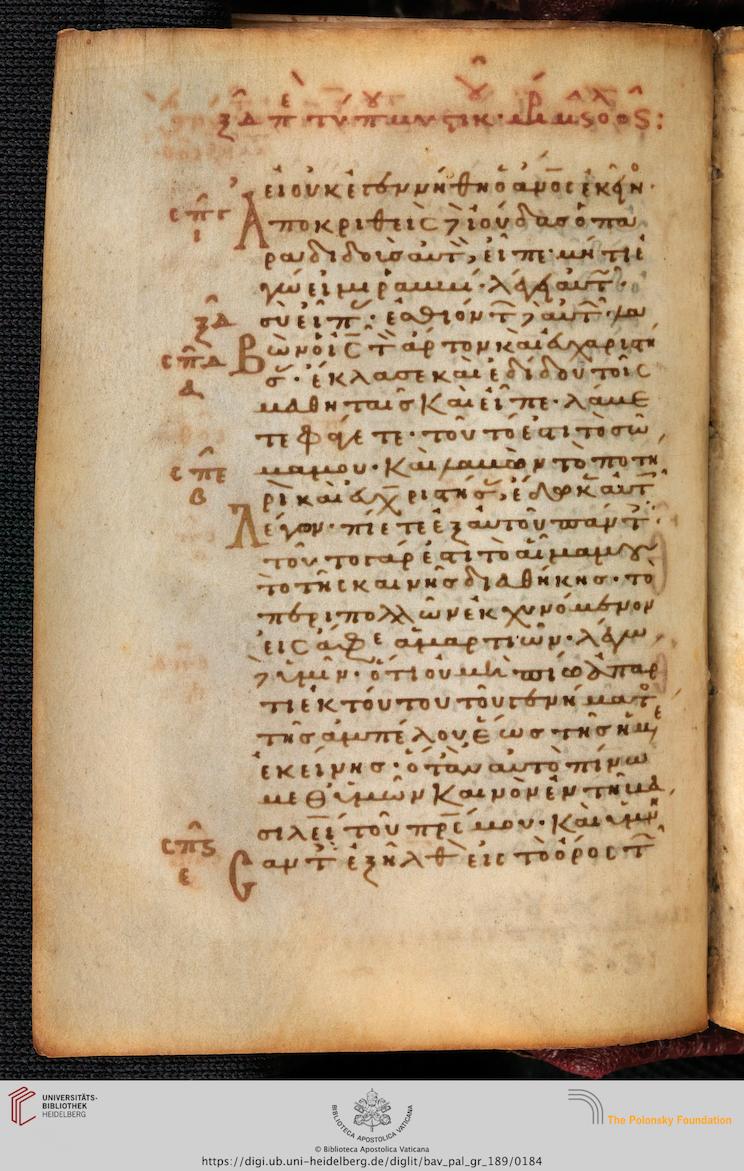 εἰ οὐκ ἐγεννήθη ὁ ἄνος ἐκεῖν·
σπγ
ι
Ἀποκριθεὶς δὲ ἰούδας ὁ πα
ραδιδοὺς αὐτὸν, εἶπε· μή τι ἐ
γώ εἰμι ῥαββί· λέγει αὐτῶ·
ξδ
σὺ εἶπας· ἐσθιόντ δὲ αὐτῶν· λα
σπδ
α
Βὼν ὁ ις τὸν ἄρτον καὶ εὐχαριστή
σας· ἔκλασε καὶ ἐδίδου τοῖς
μαθηταῖς καὶ εἶπε· λάβε
τε φάγετε· τοῦτό ἐστι τὸ σῶ
σπε
β
μά μου· Καὶ λαβὼν τὸ ποτή
ρι καὶ εὐχαριστήσας, ἔδωκεν αὐτοῖς
Λέγων· πίετε ἐξ αὐτοῦ πάντες·
τοῦτο γάρ ἐστι τὸ αἷμά μου
τὸ τῆς καινῆς διαθήκης· τὸ
περὶ πολλῶν ἐκχυνόμενον
εἰς ἄφε ἁμαρτιῶν· λέγω
δὲ ὑμῖν· ὅτι οὐ μὴ πίω ἀπάρ
τι ἐκ τούτου τοῦ γενήματος
τῆς ἀμπέλου ἕως τῆς ἡμε
ἐκείνης· ὅταν αὐτὸ πίνω
μεθ ὑμῶν καινὸν ἐν τῆ βα
σιλεί τοῦ πρς μου· Καὶ ὑμνή
σπς
ϛ
Σαντ ἐξῆλθ εἰς τὸ ὄρος τῶν
UNIVERSITÄTS-
BIBLIOTHEK
HEIDELBERG
BIBLIOTECA APOSTOLICA VATICANA
© Biblioteca Apostolica Vaticana
https://digi.ub.uni-heidelberg.de/diglit/bav_pal_gr_189/0184
The Polonsky Foundation